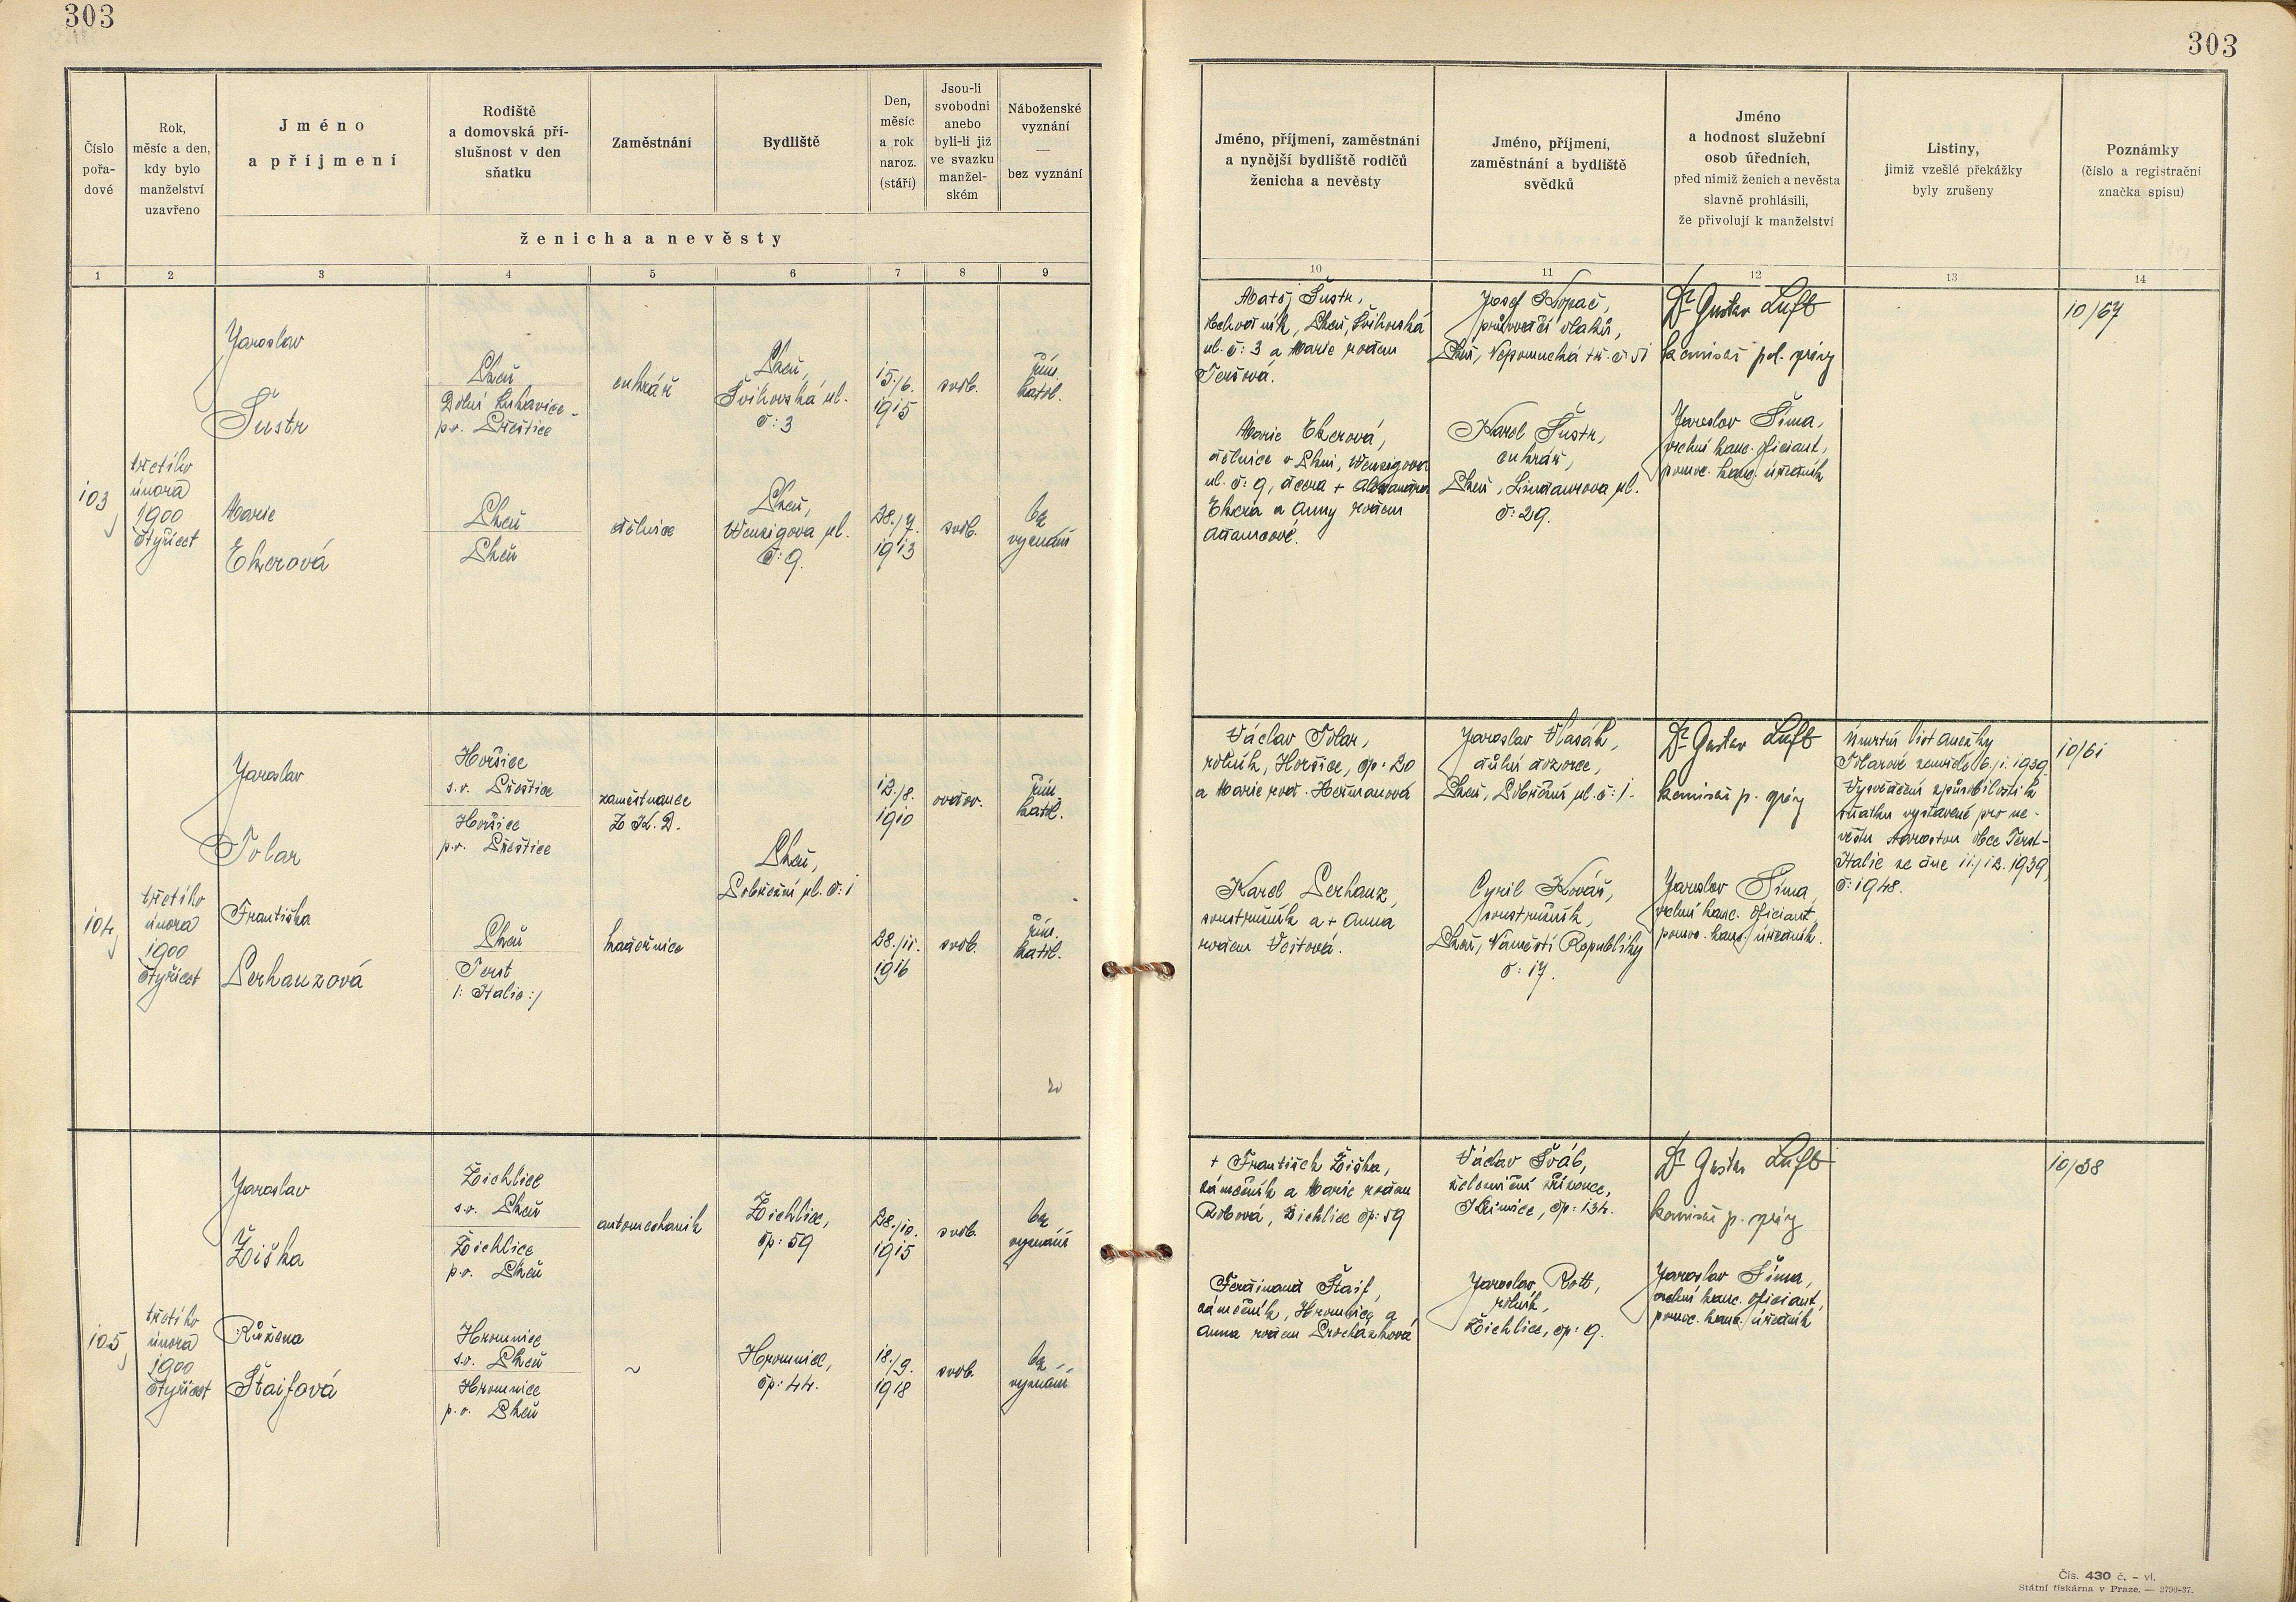 303
303
Číslo
pořa-
dové
Rok,
měsíc a den,
kdy bylo
manželství
uzavřeno
Jméno
a příjmení
Rodiště
a domovská pří-
slušnost v den
sňatku
Zaměstnání
Bydliště
Den,
měsíc
a rok
naroz.
(stáří)
Jsou-li
svobodni
anebo
byli-li již
ve svazku
manžel-
ském
Náboženské
vyznání
—
bez vyznání
ženicha a nevěsty
1 2 3 4 5 6 7 8 9
Jméno, příjmení, zaměstnání
a nynější bydliště rodičů
ženicha a nevěsty
Jméno, příjmení,
zaměstnání a bydliště
svědků
Jméno
a hodnost služební
osob úředních,
před nimiž ženich a nevěsta
slavně prohlásili,
že přivolují k manželství
Listiny,
jimiž vzešlé překážky
byly zrušeny
Poznámky
(číslo a registrační
značka spisu)
10 11 12 13 14
103
třetího
února
1900
čtyřicet
Jaroslav
Šustr
Plzeň
Dolní Lukavice -
p.o. Přeštice
cukrář
Plzeň,
Švihovská ul.
č: 3
15./6.
1915
svob.
řím.
katol.
Marie
Ekerová
Plzeň
Plzeň
dělnice
Plzeň,
Wenzigova ul.
č: 9.
28./7.
1913
svob.
bez
vyznání
Matěj Šustr,
obchodník, Plzeň, Švihovská
ul. č: 3 a Marie rodem
Teršová.
Marie Ekerová,
dělnice v Plzni, Wenzigova
ul. č: 9, dcera + Alexandra
Ekera a Anny rodem
Adamcové.
Josef Kopač,
průvodčí vlaků,
Plzeň, Nepomucká tř. č 51
Karel Šustr,
cukrář,
Plzeň, Lindaurova ul.
č: 29.
Dr Gustav Luft
komisař pol. správy
Jaroslav Šíma,
vrchní kanc. oficiant,
pomoc. kanc. úředník
10/67
104
třetího
února
1900
čtyřicet
Jaroslav
Tolar
Horšice
s.o. Přeštice
Horšice
p.o. Přeštice
zaměstnanec
Z. K. D.
Plzeň,
Pobřežní ul. č: 1
12./8.
1910
ovdov.
řím.
katol.
Františka
Perhanzová
Plzeň
Terst
/: Italie :/
kadeřnice
28./11.
1916
svob.
řím.
katol.
Václav Tolar,
rolník, Horšice, čp: 20
a Marie rod. Heřmanová
Karel Perhanz,
soustružník a + Anna
rodem Vestová.
Jaroslav Vlasák,
důlní dozorce,
Plzeň, Pobřežní ul. č: 1.
Cyril Kovář,
soustružník,
Plzeň, Náměstí Republiky
č: 17.
Dr Gustav Luft
komisař p. správy
Jaroslav Šíma,
vrchní kanc. oficiant,
pomoc. kanc. úředník.
Úmrtní list Anežky
Tolarové zemřelé 6./1. 1939,
Vysvědčení způsobilosti k
sňatku vystavené pro ne-
věstu starostou obce Terst-
Italie ze dne 11./12. 1939,
č: 1948.
10/61
105
třetího
února
1900
čtyřicet
Jaroslav
Žiška
Žichlice
s.o. Plzeň
Žichlice
p.o. Plzeň
automechanik
Žichlice,
čp: 59
28./10.
1915
svob.
bez
vyznání
Růžena
Štaifová
Hromnice
s.o. Plzeň
Hromnice
p.o. Plzeň
~
Hromnice,
čp: 44.
18./9.
1918
svob.
bez
vyznání
+ František Žiška,
zámečník a Marie rodem
Robová, Žichlice čp: 59
Ferdinand Štaif,
zámečník, Hromnice a
Anna rodem Procházková
Václav Šváb,
železniční zřízenec,
Křimice, čp: 134.
Jaroslav Rott,
rolník,
Žichlice, čp: 9.
Dr Gustav Luft
komisař p. správy
Jaroslav Šíma,
vrchní kanc. oficiant,
pomoc. kanc. úředník
10/38
Čís. 430 č. – vl.
Státní tiskárna v Praze. — 2799-37.